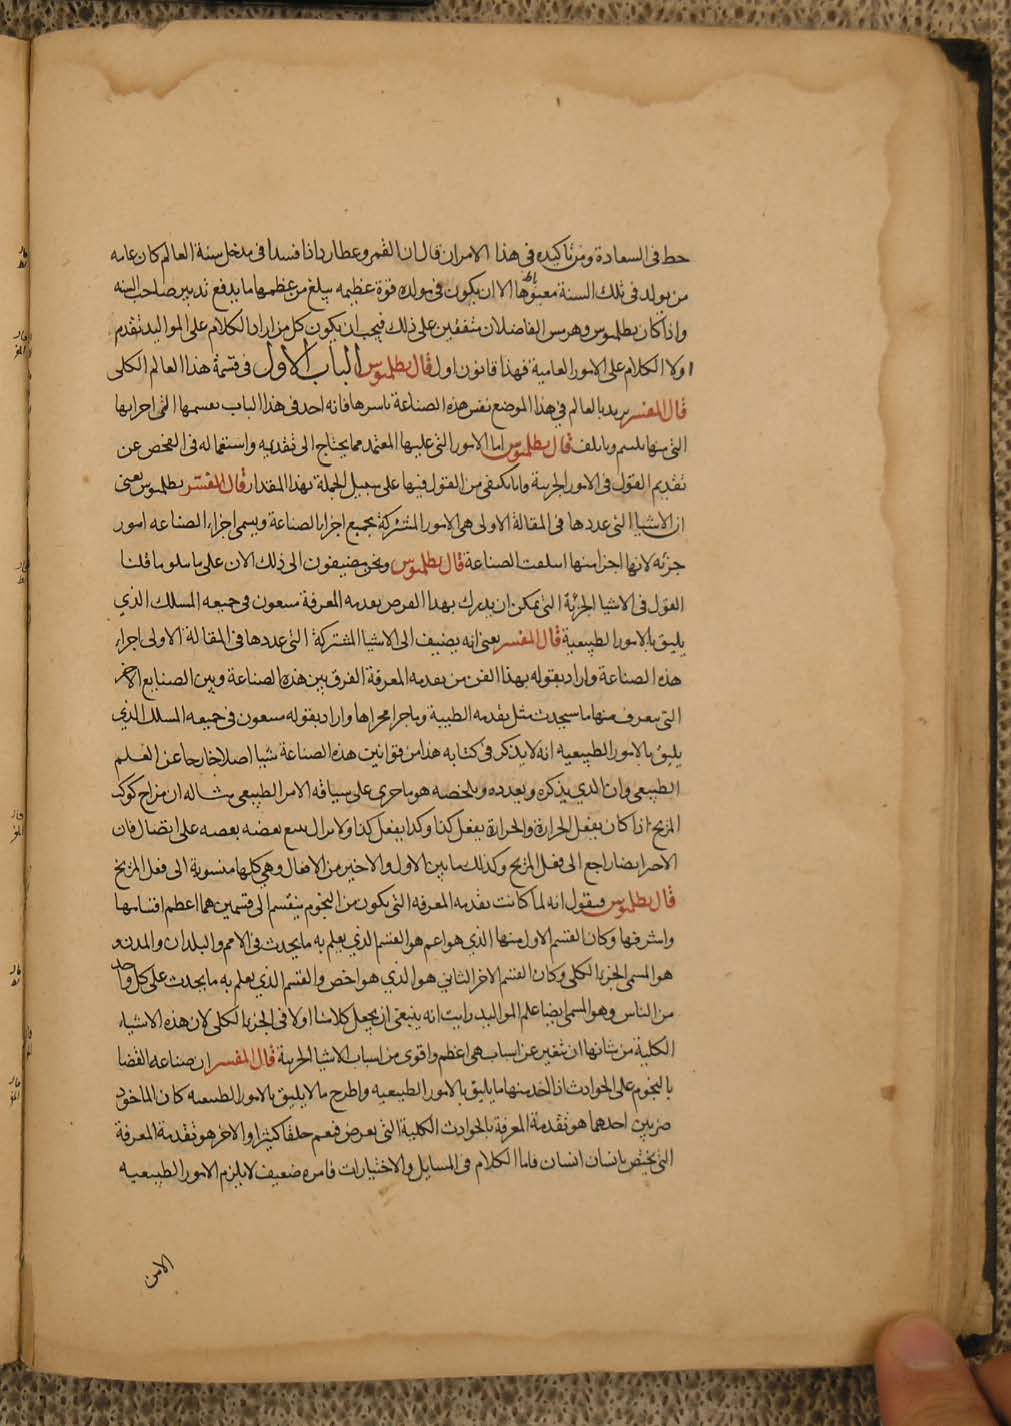 حظ فى السعادة ومن تاكيده فى هذا الامر ان قال ان القمر وعطارد اذا فسدا فى مدخل سنة العالم كان عامه
من يولد فى تلك السنة معتوها الا ان يكون فى مولده قوة عظيمه يبلغ من عظمها ما يدفع تدبير صاحب السنه
واذا كان بطلميوس وهرمس الفاضلان متفقين على ذلك فيجب ان يكون كل من اراد الكلام على المواليد تقدم
اولا الكلام على الامور العامية فهذا قانون اول قال بطلميوس الباب الاول فى قسمة هذا العالم الكلى
قال المفسر يريد بالعالم فى هذا الموضع نفس هذه الصناعة باسرها فانه احد فى هذا الباب يقسمها الى اجزايها
التى منها تلتيم وياتلف قال بطلميوس اما الامور التى عليها المعتمد مما يحتاج الى تقديمه واستعماله فى الفحص عن
تقديم القول فى الامور الجزيية وانا نكتفى من القول فيها على سبيل الجملة بهذا المقدار قال المفسر بطلميوس يعنى
ان الاشيا التى عددها فى المقالة الاولى هى الامور المشتركة بجميع اجزا الصناعة ويسمى اجزاء الصناعه امور
جزئه لانها اجزا منها اسلفت الصناعة قال بطلميوس ونحن مضيفون الى ذلك الان على ما يتلو ما قلنا
القول فى الاشيا الجزئة التى يمكن ان يدرك بهذا الغرض بقدمه المعرفة متبعون فى جميعه المسلك الذي
يليق بالامور الطبيعية قال المفسر يعنى انه يضيف الى الاشيا المشتركة التى عددها فى المقالة الاولى اجزاء
هذه الصناعة واراد بقوله بهذا الفن من بقدمه المعرفة الفرق بين هذه الصناعة وبين الصنايع الاخر
التى يتعرف منها ما سيحدث مثل بقدمه الطبيبة وما جرا مجراها واراد بقوله متبعون فى جميعه المسلك الذي
يليق بالامور الطبيعيه انه لا يذكر فى كتابه هذا من قوانين هذه الصناعة شيا اصلا خارجا عن العلم
الطبيعى وان الذي يذكره ويعدده ويلخصه هو ما جرى على سياقه الامر الطبيعى مثاله ان مزاج كوكب
المريخ اذا كان يفعل الحرارة والحرارة يفعل كذا وكذا يفعل كذا ولا يزال يتبع بعضه بعضه على اتصال فان
الاخر ايضا راجع الى فعل المريخ وكذلك ما بين الاول والاخير من الافعال وهى كلها منسوبة الى فعل المريخ
قال بطلميوس فنقول انه لما كانت تقدمه المعرفه التى يكون من النجوم ينقسم الى قسمين هما اعظم اقسامها
واشرفها وكان القسم الاول منها الذي هو اعم هو القسم الذي يعلم به ما يحدث فى الامم والبلدان والمدن و
هو المسمى الجز بالكلى وكان القسم الاخر الثانى هو الذي هو اخص والقسم الذي يعلم به ما يحدث على كل واحد
من الناس وهو المسمى ايضا علم المواليد رايت انه ينبغى ان يجعل كلامنا اولا فى الجز بالكلى لان هذه الاشياء
الكلية من شانها ان تتغير عن اسباب هى اعظم واقوى من اسباب الاشيا الجزيية قال المفسر ان صناعه القضا
بالنجوم على الحوادث اذا اخذ منها ما يليق بالامور الطبيعيه واطرح ما لا يليق بالامور الطبيعيه كان الماخوذ
ضربين احدهما هو تقدمة المعرفة بالحوادث الكلية التى تعرض فيعم خلقا كثيرا والاخر هو تقدمة المعرفة
التى يختص بانسان انسان فاما الكلام فى المسايل والاختيارات فامره ضعيف لا يلزم الامور الطبيعيه
الامن